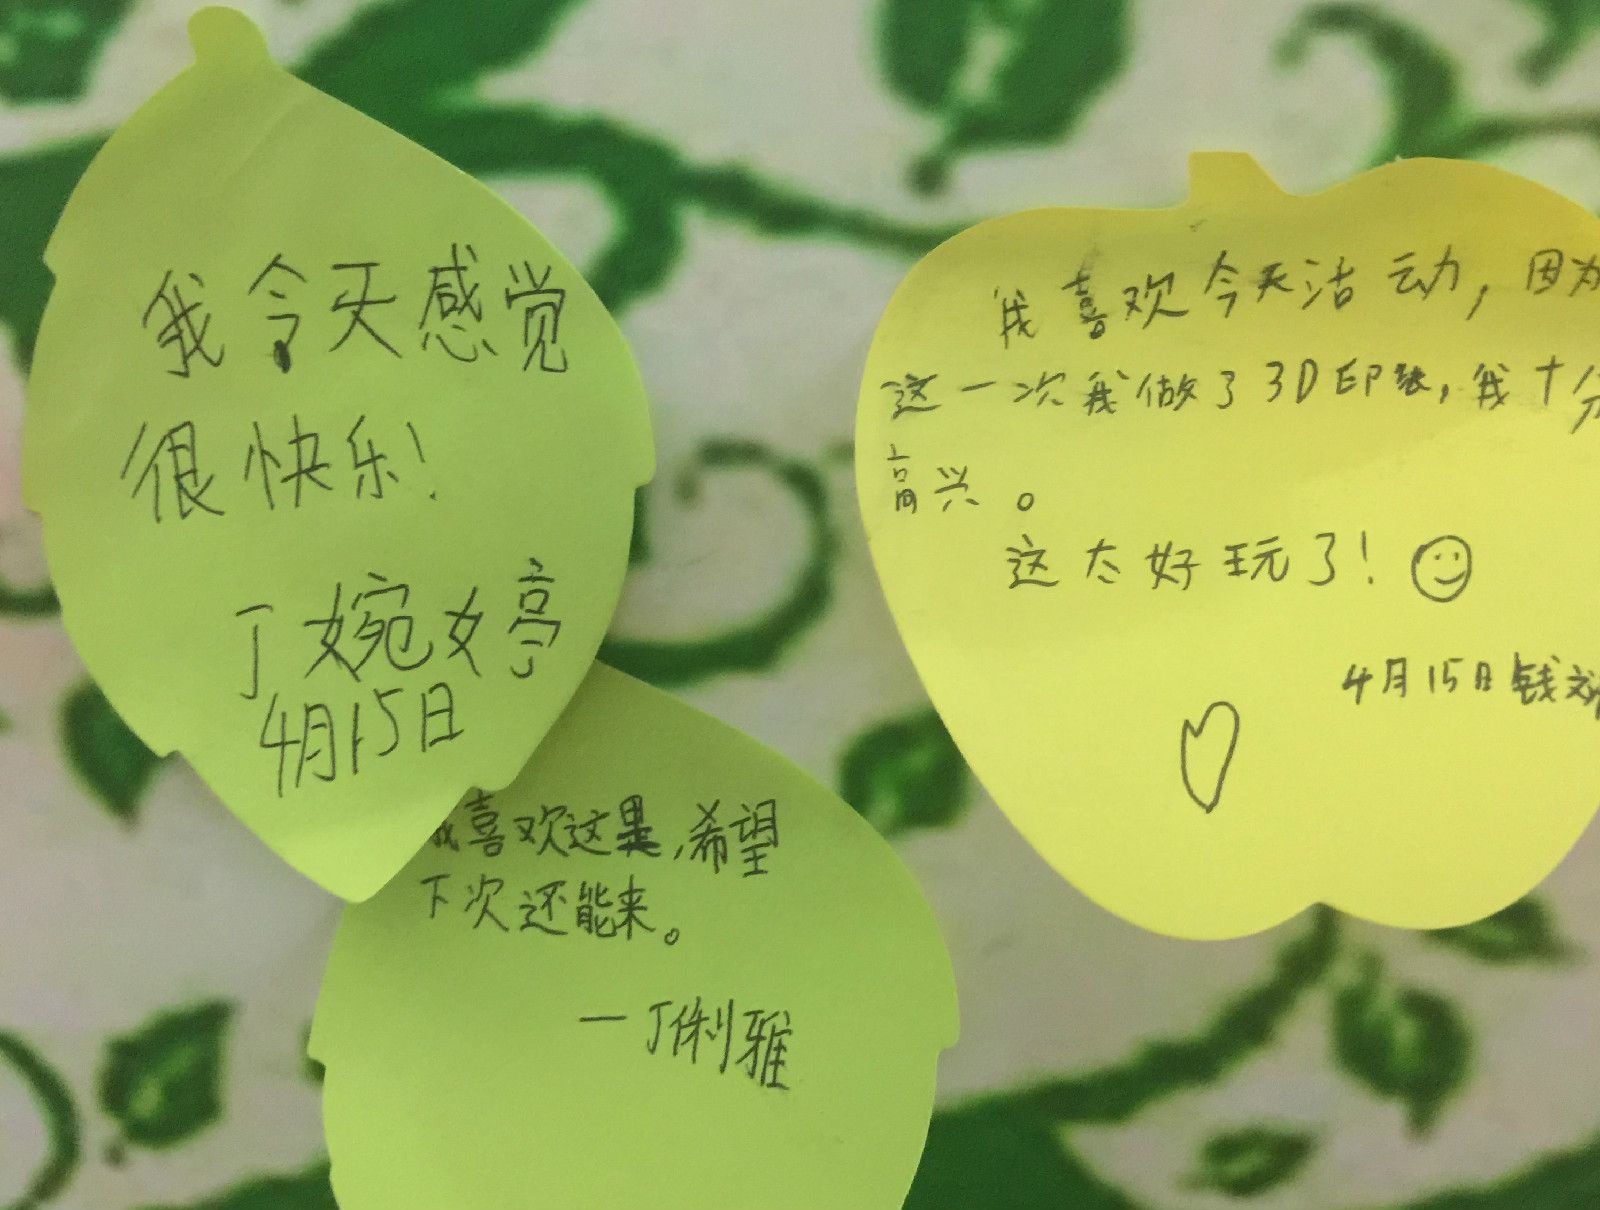 我今天感觉
很快乐!
丁婉婷
4月15日
我喜欢这里,希望
下次还能来。
一丁俐雅
我喜欢今天活动,因为
这一次我做了3D印章,我十分
高兴。
这太好玩了!
4月15日钱